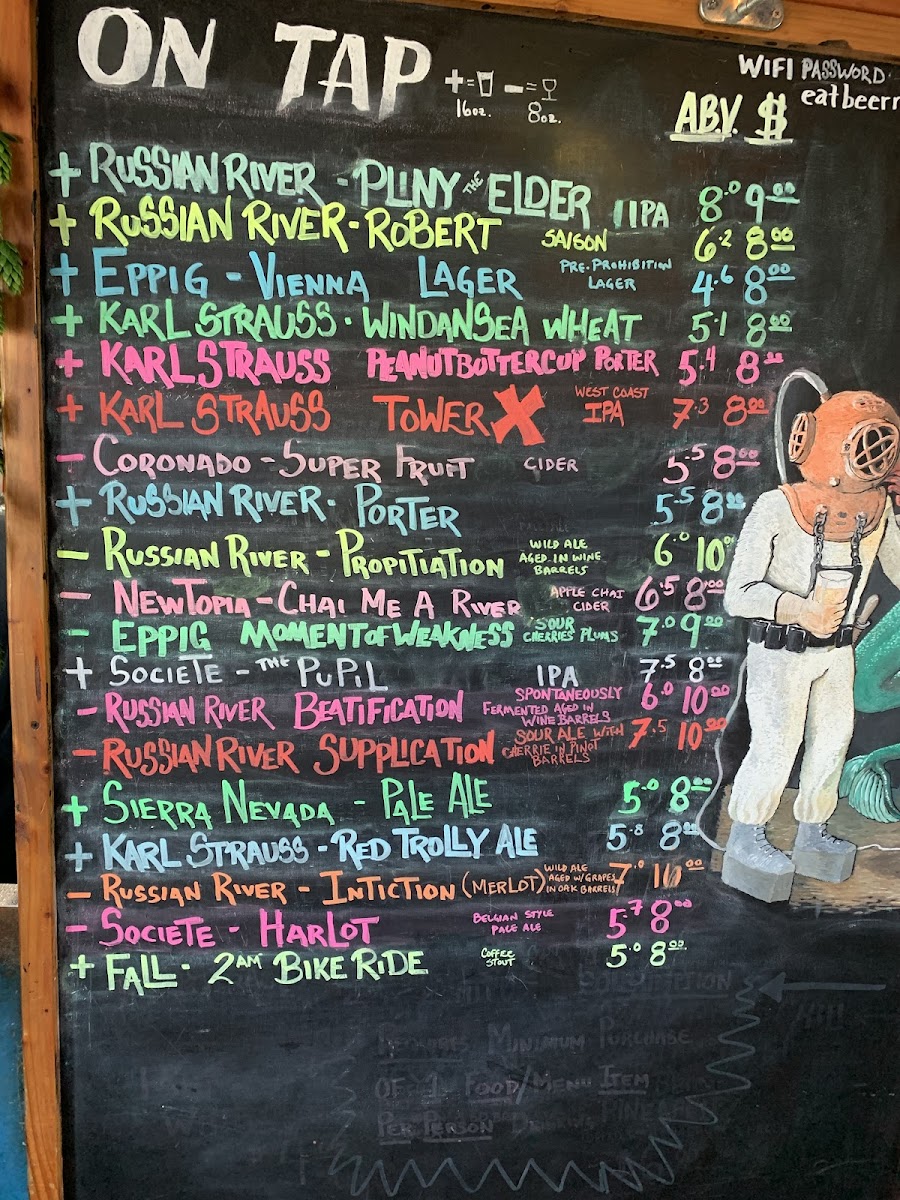 ON TAP + = - =
16oz. 8oz.
WIFI PASSWORD
eatbeerr
A.B.V. $
+ RUSSIAN RIVER - PLINY THE ELDER IIPA 8.0 9.00
+ RUSSIAN RIVER - ROBERT SAISON 6.2 8.00
+ EPPIG - VIENNA LAGER PRE-PROHIBITION LAGER 4.6 8.00
+ KARL STRAUSS - WINDANSEA WHEAT 5.1 8.00
+ KARL STRAUSS PEANUTBUTTERCUP PORTER 5.4 8.00
+ KARL STRAUSS TOWER X WEST COAST IPA 7.3 8.00
- CORONADO - SUPER FRUIT CIDER 5.5 8.00
+ RUSSIAN RIVER - PORTER 5.5 8.00
- RUSSIAN RIVER - PROPITIATION WILD ALE AGED IN WINE BARRELS 6.0 10.00
- NEWTOPIA - CHAI ME A RIVER APPLE CHAI CIDER 6.5 8.00
- EPPIG MOMENT OF WEAKNESS SOUR CHERRIES PLUMS 7.0 9.00
+ SOCIETE - THE PUPIL IPA 7.5 8.00
- RUSSIAN RIVER BEATIFICATION SPONTANEOUSLY FERMENTED AGED IN WINE BARRELS 6.0 10.00
- RUSSIAN RIVER SUPPLICATION SOUR ALE WITH CHERRIE IN PINOT BARRELS 7.5 10.00
+ SIERRA NEVADA - PALE ALE 5.0 8.00
+ KARL STRAUSS - RED TROLLY ALE 5.8 8.00
- RUSSIAN RIVER - INTICTION (MERLOT) WILD ALE AGED W/ GRAPES IN OAK BARRELS 7.0 10.00
- SOCIETE - HARLOT BELGIAN STYLE PALE ALE 5.7 8.00
+ FALL - 2AM BIKE RIDE COFFEE STOUT 5.0 8.00
REQUIRES MINIMUM PURCHASE
OF 1 FOOD/MENU ITEM
PER PERSON